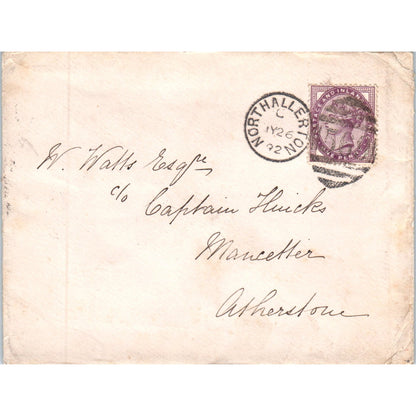 NORTHALLERTON
C
JY26
92
POSTAGE AND INLAND
W. Watts Esqre
c/o Captain Huicks
Mancetter
Atherstone